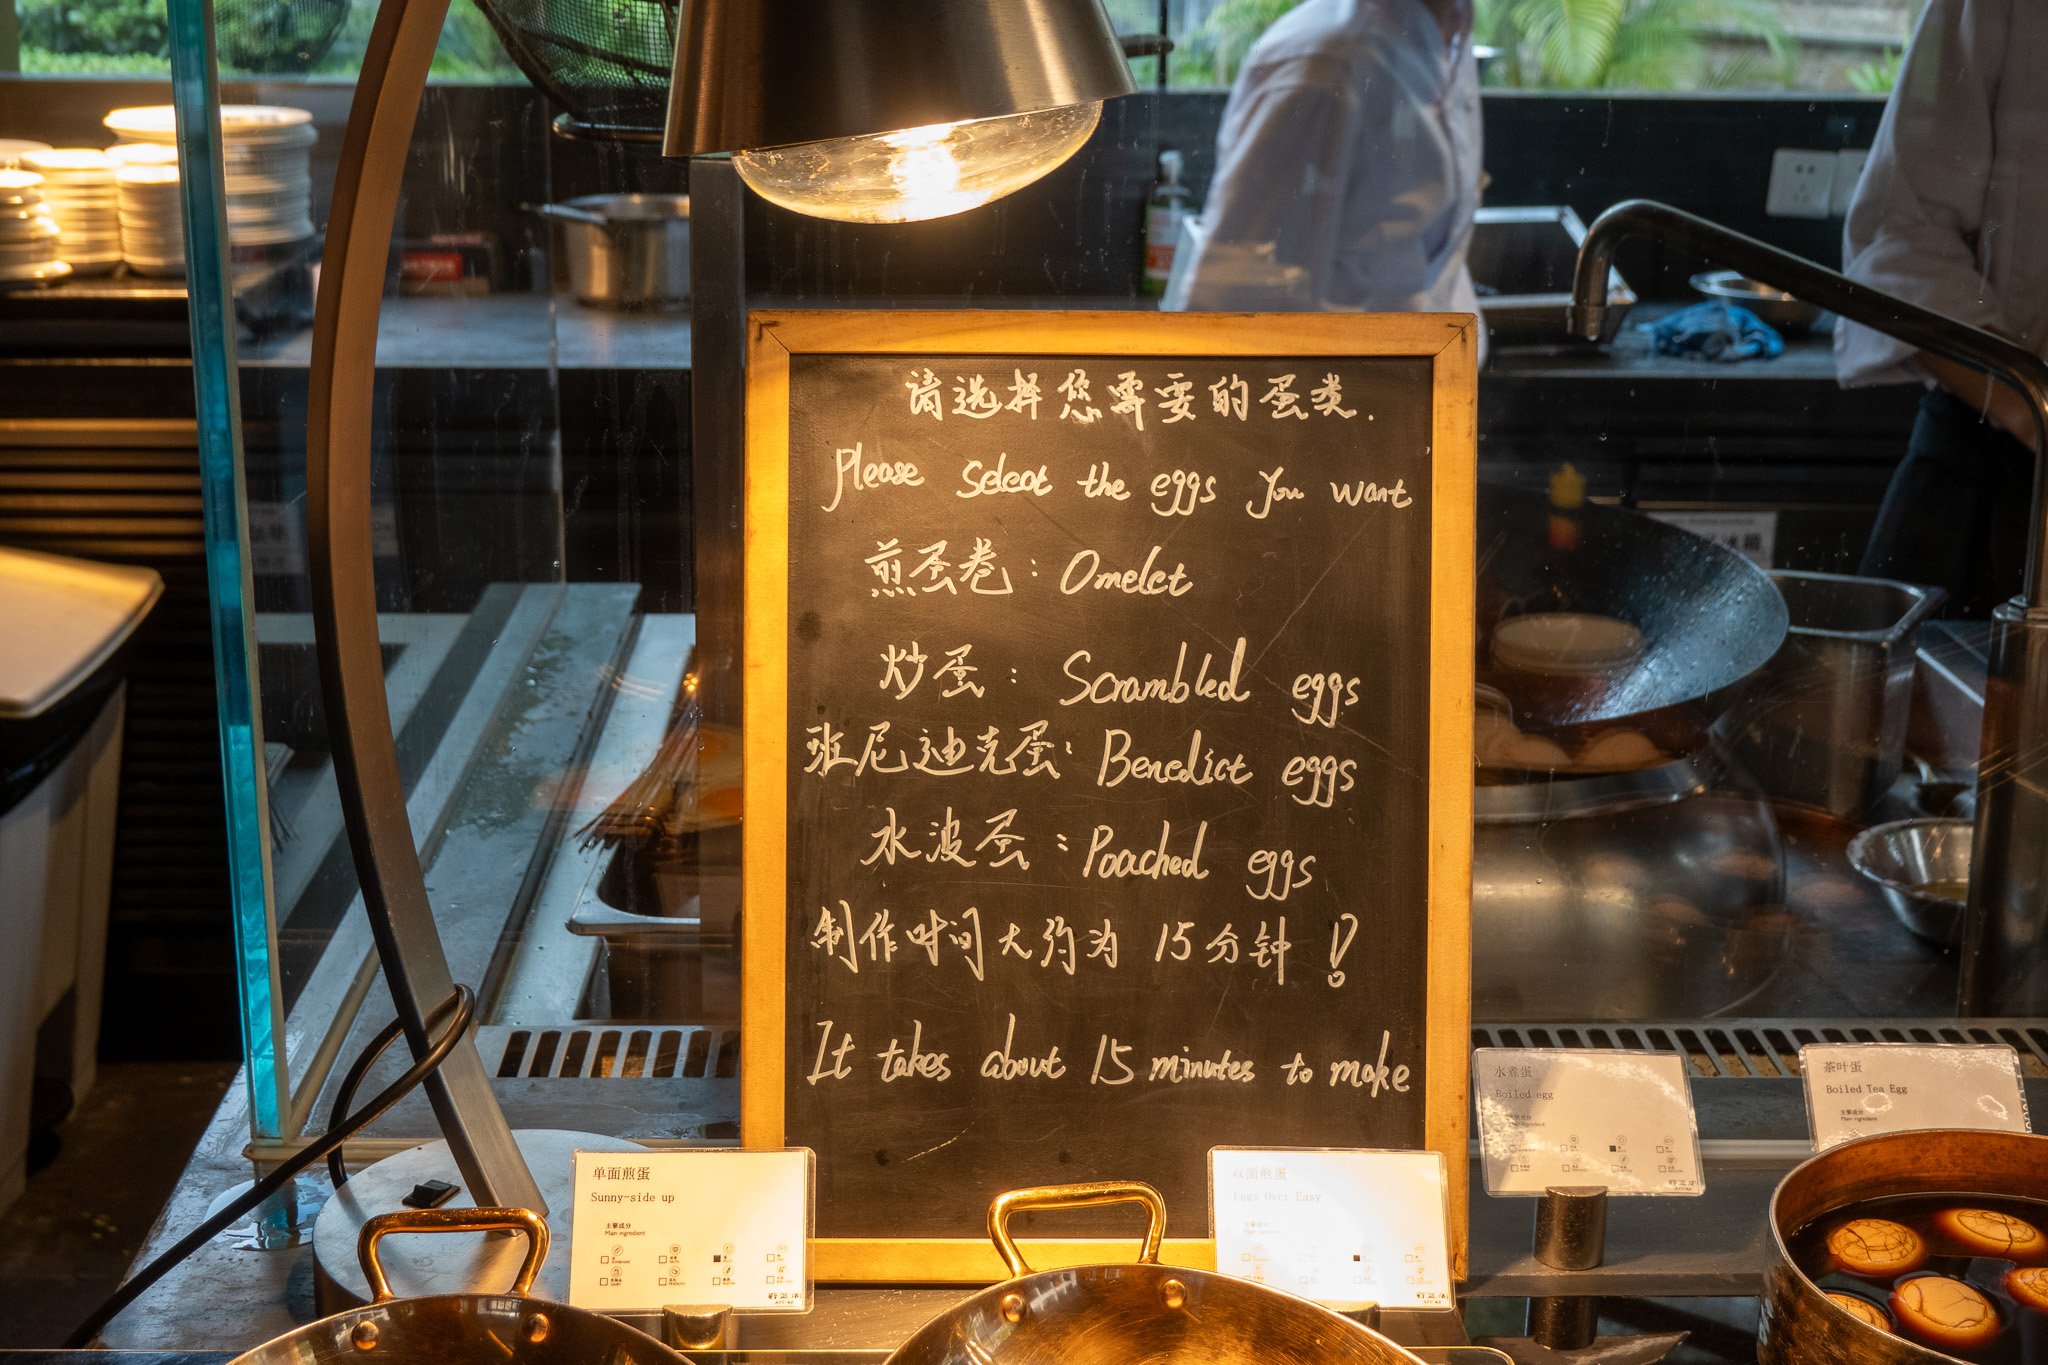 请选择您需要的蛋类.
Please Select the eggs you want
煎蛋卷: Omelet
炒蛋: Scrambled eggs
班尼迪克蛋: Benedict eggs
水波蛋: Poached eggs
制作时间大约为 15分钟!
It takes about 15 minutes to make
单面煎蛋
Sunny-side up
主要成分
Main ingredient
双面煎蛋
Eggs Over Easy
主要成分
Main ingredient
水煮蛋
Boiled egg
Main ingredient
茶叶蛋
Boiled Tea Egg
主要成分
Main ingredient